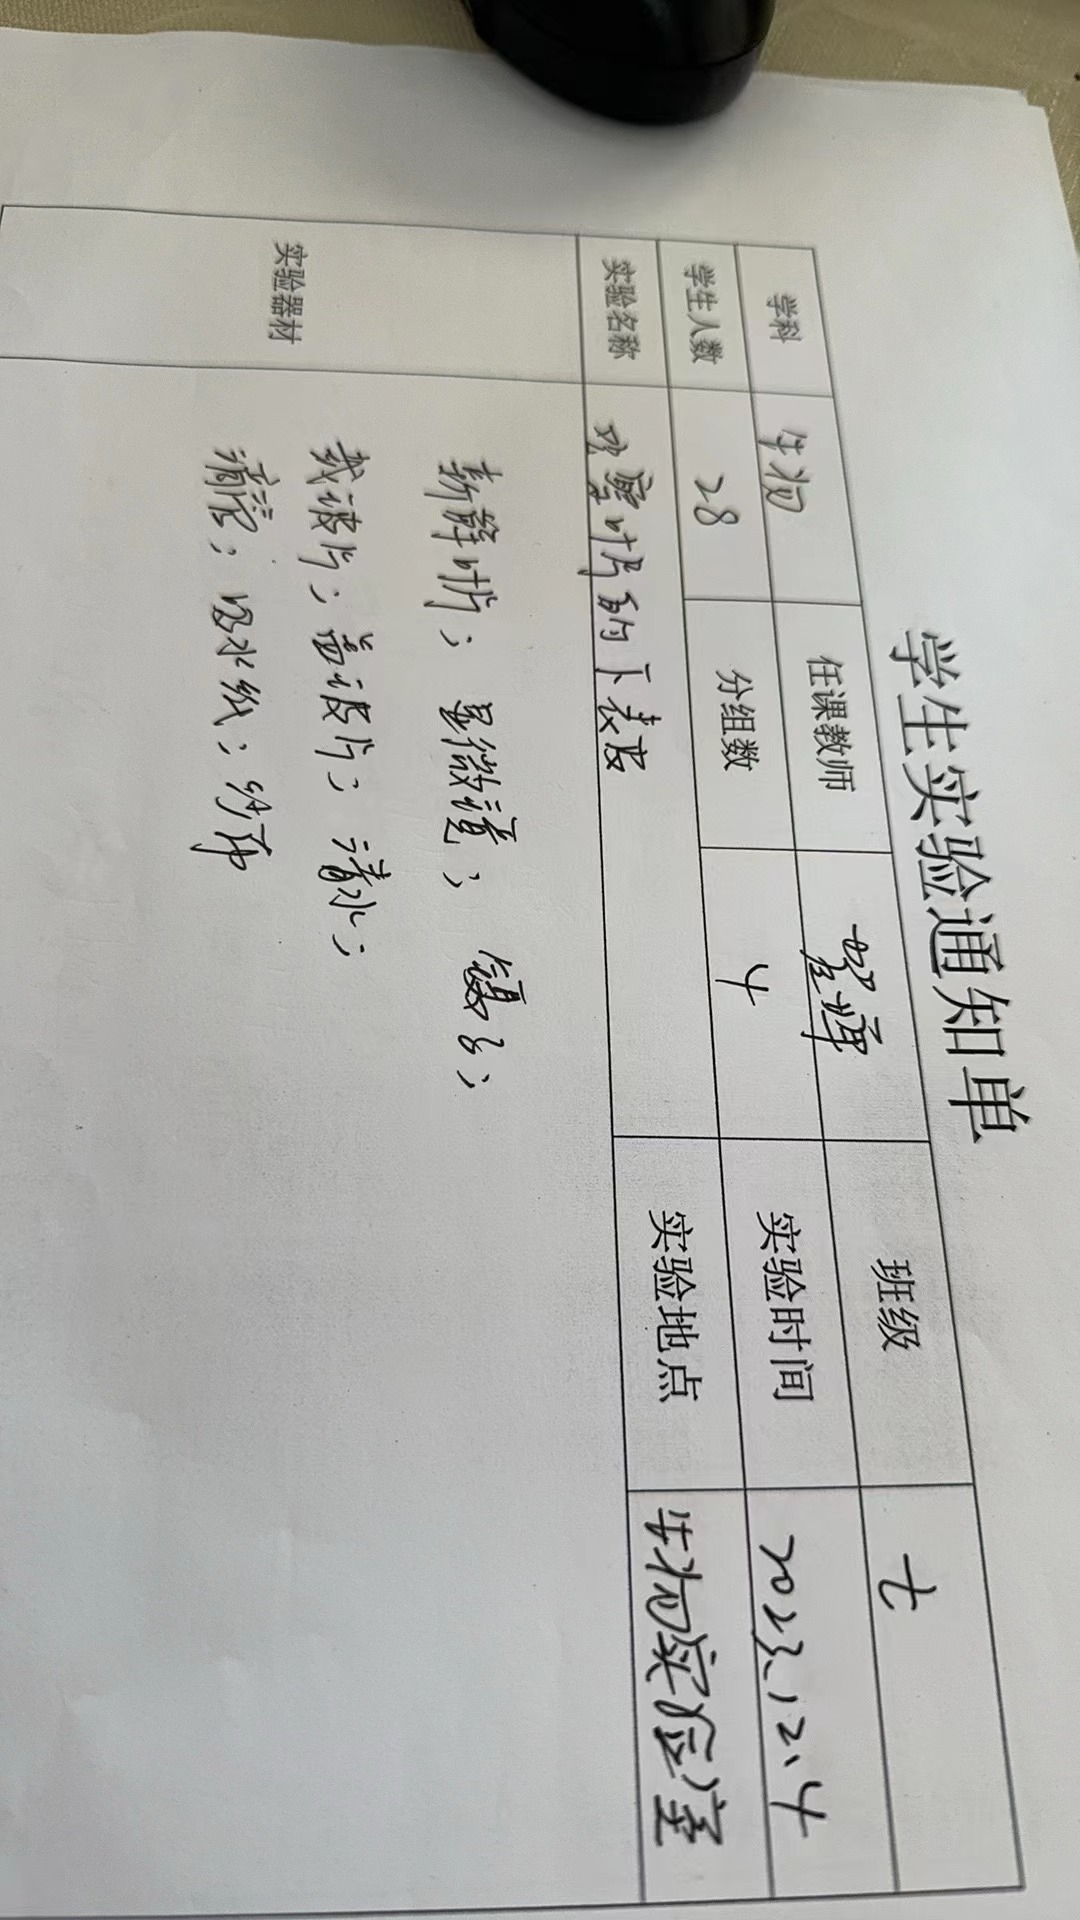 学生实验通知单
学科 生物 任课教师 班级 七
学生人数 28 分组数 4 实验时间 2023、12、4
实验名称 观察叶片的下表皮 实验地点 生物实验室
实验器材
新鲜叶片；显微镜；镊子；
载玻片；盖玻片；清水；
滴管；吸水纸；纱布